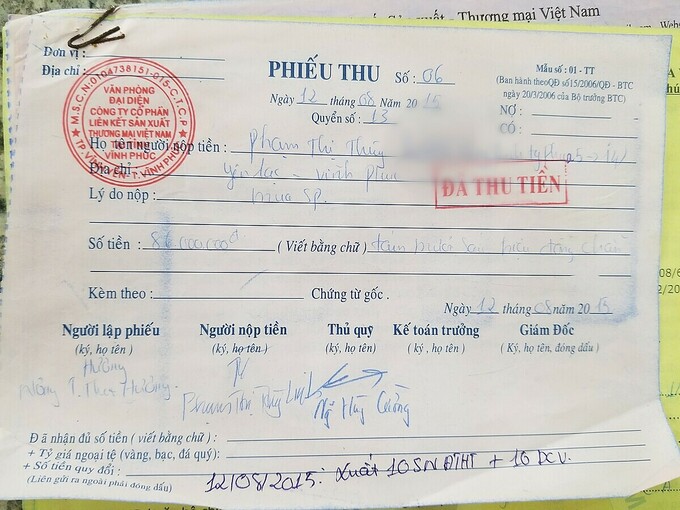 Sản xuất - Thương mại Việt Nam
Đơn vị :
Địa chỉ :
PHIẾU THU Số : 06
Mẫu số : 01 - TT
(Ban hành theo QĐ số 15/2006/QĐ - BTC
ngày 20/3/2006 của Bộ trưởng BTC)
Ngày 12 tháng 08 Năm 2015
Quyển số : 13
NỢ :
CÓ :
M.S.C.N:0104738151-015-C.T.C.P
VĂN PHÒNG
ĐẠI DIỆN
CÔNG TY CỔ PHẦN
LIÊN KẾT SẢN XUẤT
THƯƠNG MẠI VIỆT NAM
TẠI TỈNH
VĨNH PHÚC
TP. VĨNH YÊN - T. VĨNH PHÚC
Họ tên người nộp tiền : Phạm Thị Thủy
Địa chỉ : Yên Lạc - Vĩnh Phúc
ĐÃ THU TIỀN
Lý do nộp : mua SP.
Số tiền : 86.000.000đ ( Viết bằng chữ ) tám mươi sáu triệu đồng chẵn
Kèm theo : Chứng từ gốc .
Ngày 12 tháng 08 năm 2015
Người lập phiếu Người nộp tiền Thủ quỹ Kế toán trưởng Giám Đốc
(ký, họ tên ) (ký, họ tên ) (ký, họ tên ) (ký , họ tên ) ( Ký, họ tên, đóng dấu)
Hường
Ng Hùng Cường
Đã nhận đủ số tiền ( viết bằng chữ ) :
+ Tỷ giá ngoại tệ (vàng, bạc, đá quý):
+ Số tiền quy đổi :
(Liên gửi ra ngoài phải đóng dấu)
12/08/2015: Xuất 10SN ĐTHT + 10 DCV.